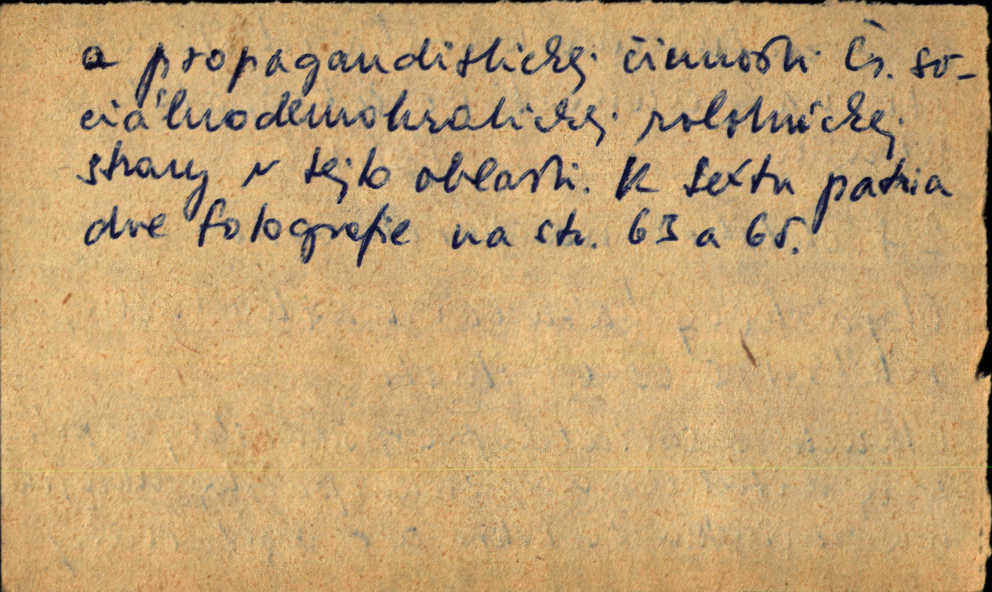 a propagandistickej činnosti Čs. so-
ciálnodemokratickej robotníckej
strany v tejto oblasti. K textu patria
dve fotografie na str. 63 a 65.